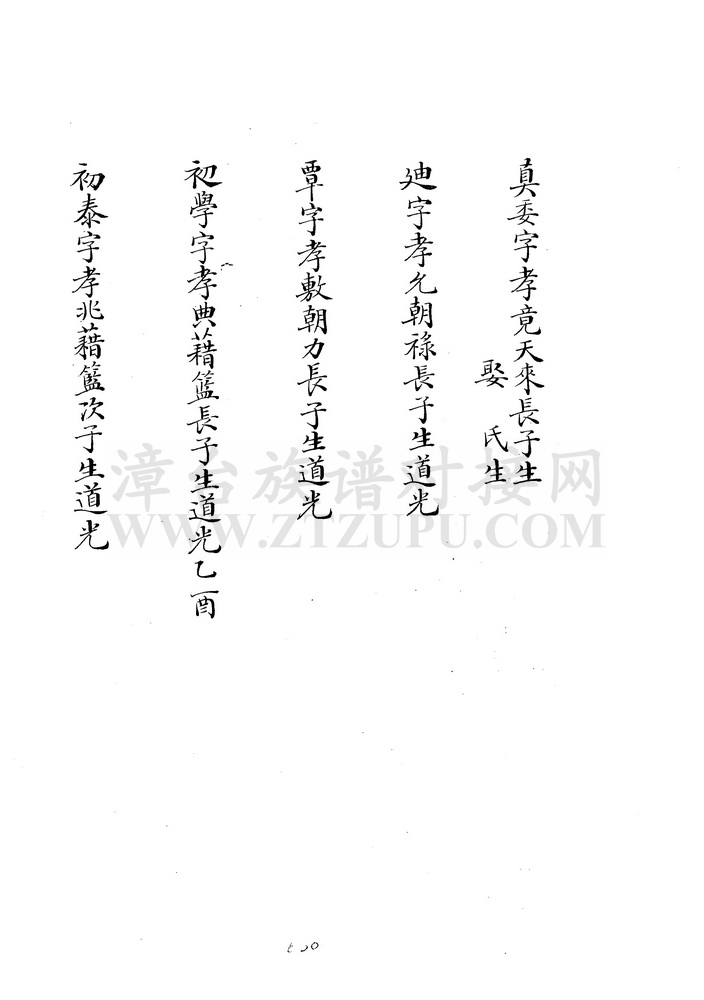 真委字孝竟天來長子生
娶 氏生
廸字孝允朝祿長子生道光
覃字孝敷朝力長子生道光
初學字孝典藉籃長子生道光乙酉
初泰字孝兆藉籃次子生道光
漳台族谱对接网
WWW.ZTZUPU.COM